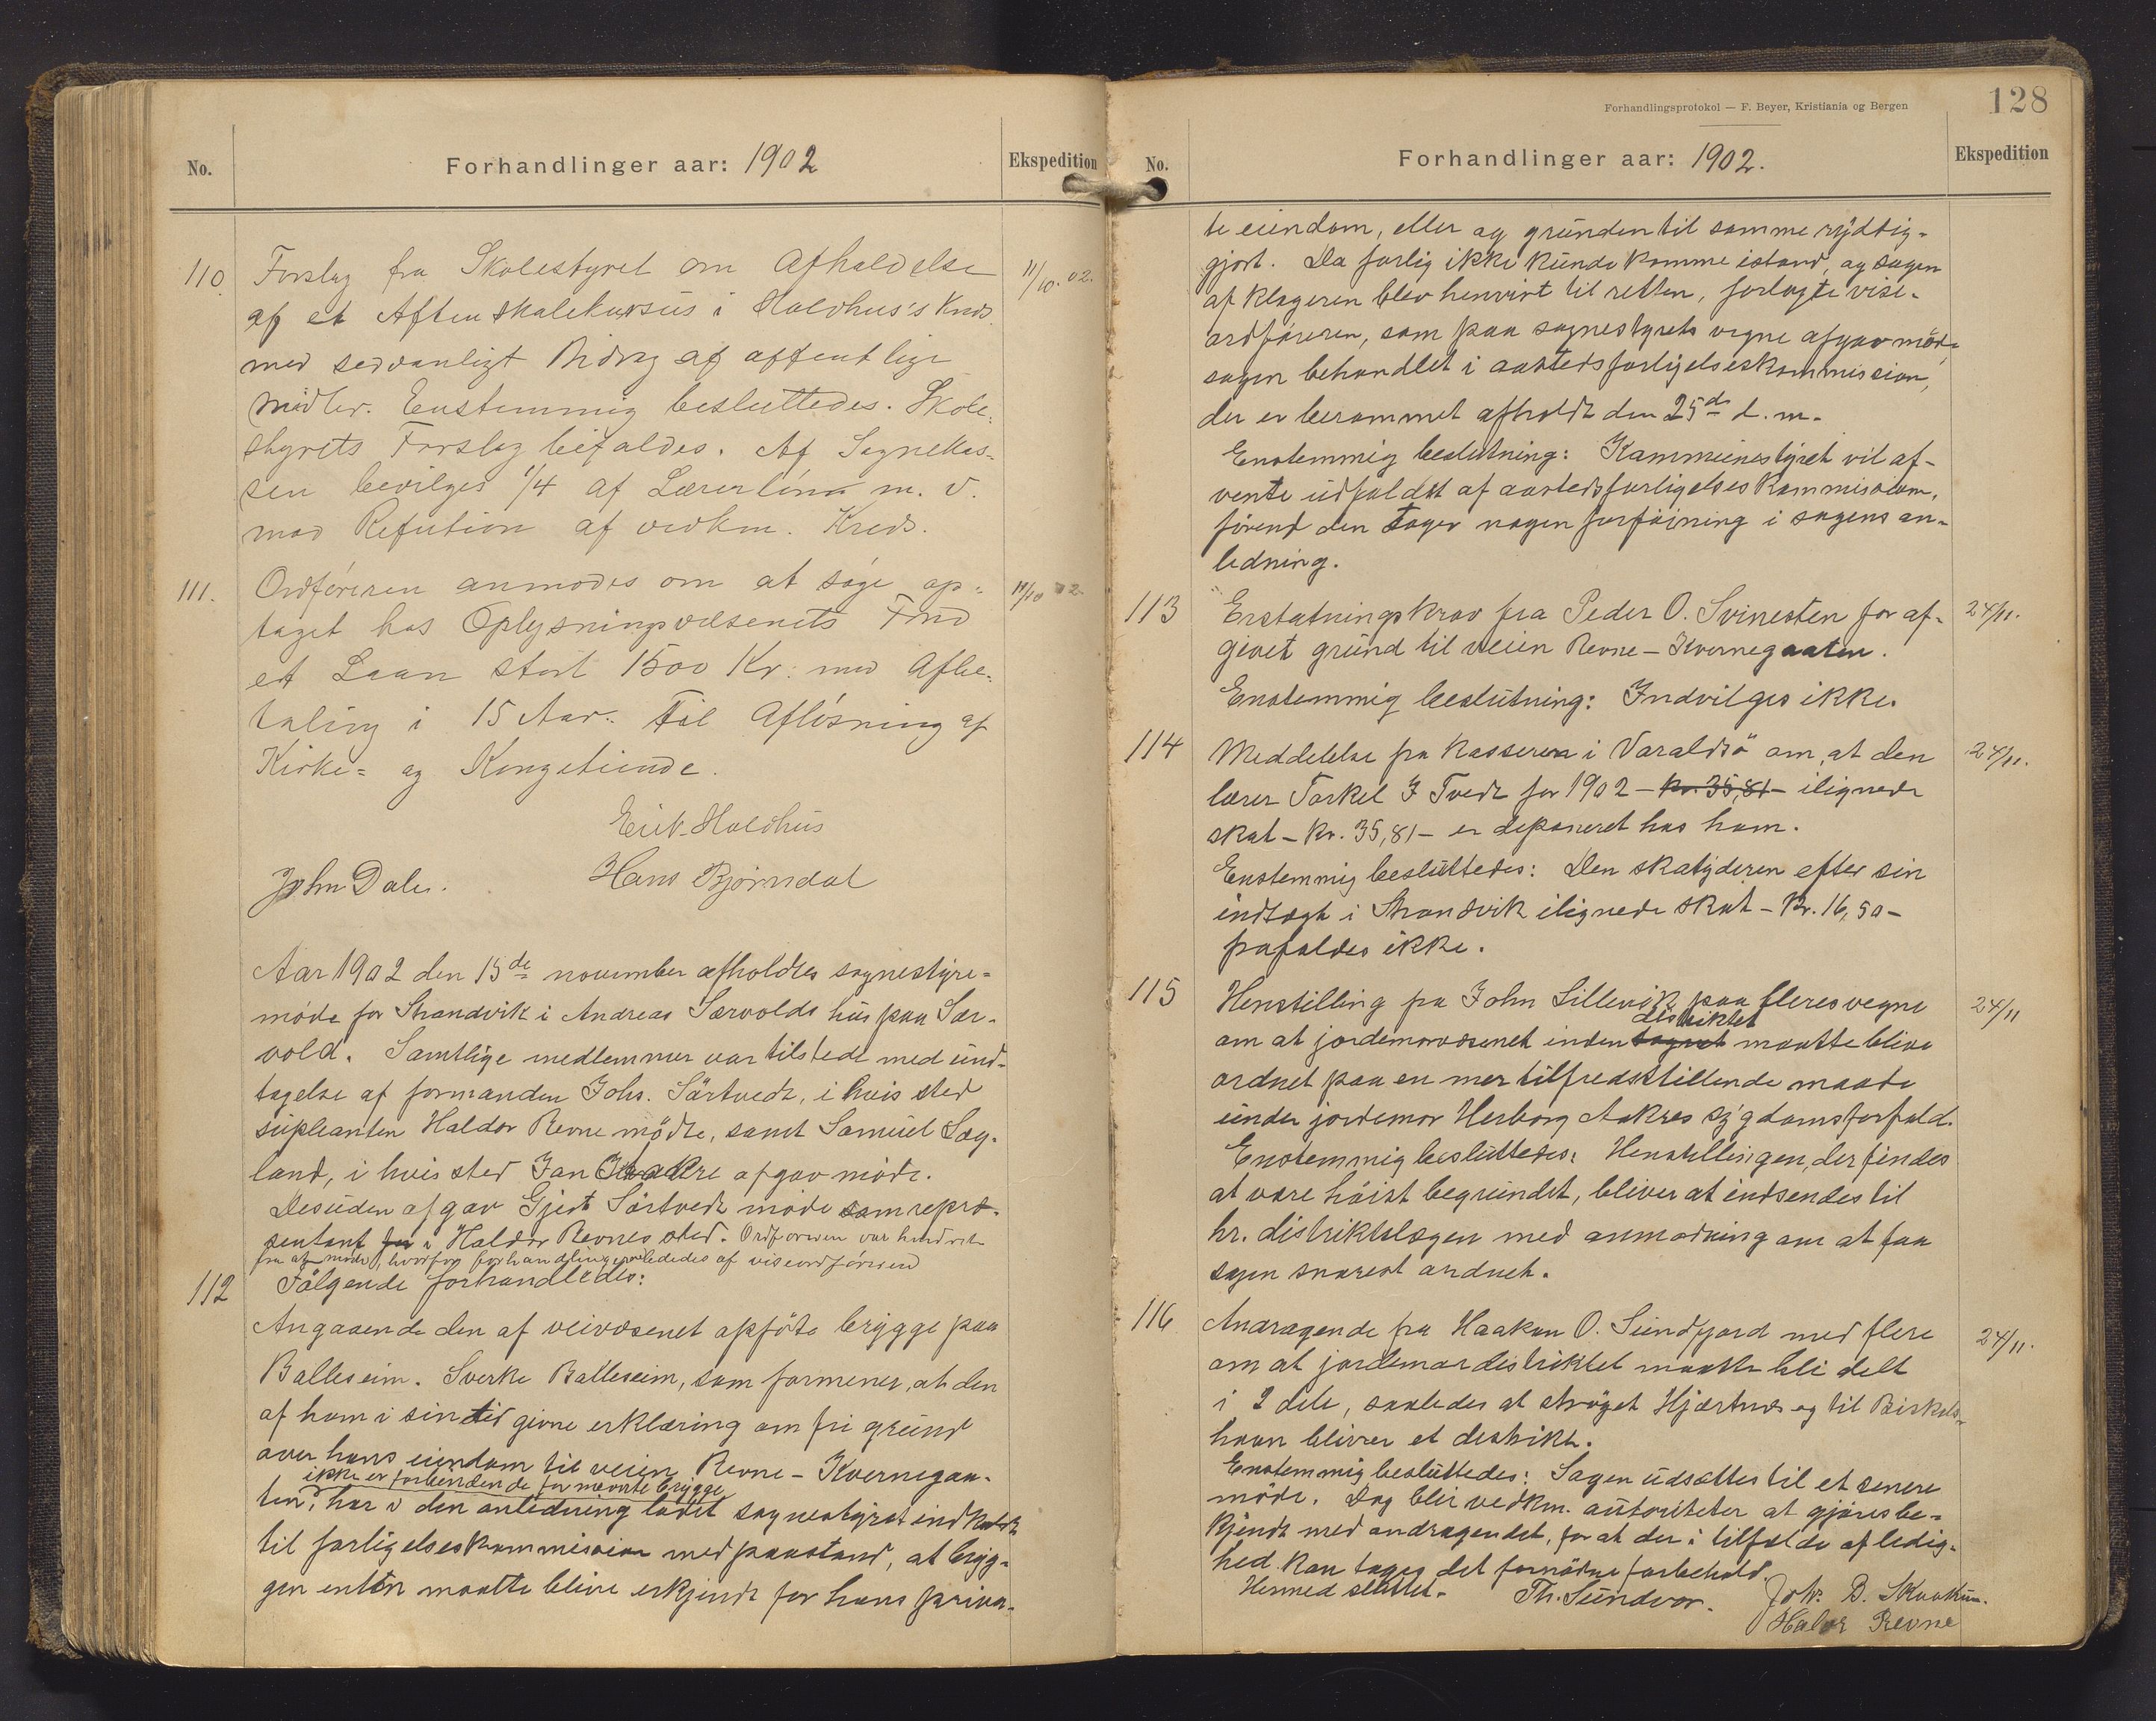 No.
Forhandlinger aar: 1902
Ekspedition
110 Forslag fra Skolestyret om Afholdelse 11/10.02.
af et Aftenskolekursus i Holdhus's Kreds
med sedvanligt Bidrag af offentlige
Midler. Enstemmig besluttedes. Skole-
styrets Forslag bifaldes. Af Sognekas-
sen bevilges 1/4 af Lærerløn m. v.
mod Refution af vedkm. Kreds.
111. Ordføreren anmodes om at søge op- 11/10 02.
taget hos Oplysningsvæsenets Fond
et Laan stort 1500 Kr: med Afbe-
taling i 15 Aar. Til Afløsning af
Kirke= og Kongetiende.
Erik Holdhus
John Dale.
Hans Bjørndal
Aar 1902 den 15de november afholdtes sognestyre-
møde for Strandvik i Andreas Særvolds hus paa Sær-
vold. Samtlige medlemmer var tilstede med und-
tagelse af formanden Johs. Sørtvedt, i hvis sted
supleanten Haldor Revne mødte, samt Samuel Søg-
land, i hvis sted Jan Aakre afgav møde.
Desuden afgav Gjert Sørtvedt møde som repræ-
sentant i Haldor Revnes sted. Ordføreren var hindret
fra at møde, hvorfor forhandlingerne lededes af viseordføreren
112 Følgende forhandledes:
Angaaende den af veivæsenet opførte brygge paa
Balleseim. Sverke Balleseim, som formener, at den
af ham i sin tid givne erklæring om fri grund
over hans eiendom til veien Revne - Kvernegaa-
ikke er forbindende for nævnte brygge
ten, har i den anledning ladet sognestyret indkaldt
til forligelseskommission med paastand, at bryg-
gen enten maatte blive erkjendt for hans priva-
Forhandlingsprotokol — F. Beyer, Kristiania og Bergen
128
No.
Forhandlinger aar: 1902.
Ekspedition
te eiendom, eller og grunden til samme ryddig-
gjort. Da forlig ikke kunde komme istand, og sagen
af klageren blev henvist til retten, forlagte vise-
ordføreren, som paa sognestyrets vegne afgav møde,
sagen behandlet i aastedsforligelseskommission,
der er berammet afholdt den 25de d. m.
Enstemmig beslutning: Kommunestyret vil af-
vente udfaldet af aastedsforligelseskommission,
førend den tager nogen forføining i sagens an-
ledning.
113 Erstatningskrav fra Peder O. Svinesten for af- 24/11.
givet grund til veien Revne - Kvernegaaten.
Enstemmig beslutning: Indvilges ikke.
114 Meddelelse fra kassereren i Varaldsö om, at den 24/11.
lærer Torkel J Tvedt for 1902 - kr. 35,81 - ilignede
skat - kr. 35,81 - er deponeret hos ham.
Enstemmig besluttedes: Den skatyderen efter sin
indtægt i Strandvik ilignede skat - kr. 16,50 -
frafaldes ikke.
115 Henstilling fra John Lillevik paa fleres vegne 24/11
distriktet
om at jordemorvæsenet inden sognet maatte blive
ordnet paa en mer tilfredsstillende maade
under jordemor Herborg Aakres sygdomsforfald.
Enstemmig besluttedes: Henstillingen, der findes
at være høist begrundet, bliver at indsendes til
hr. distriktslægen med anmodning om at faa
sagen snarest ordnet.
116 Andragende fra Haakon O. Sundfjord med flere 24/11.
om at jordemordistriktet maatte bli delt
i 2 dele, saaledes at strøget Hjærtnes og til Birkels-
haun bliver et distrikt.
Enstemmig besluttedes: Sagen udsættes til et senere
møde. Dog blir vedkm. autoriteter at gjøres be-
kjendt med andragendet, for at der i tilfælde af ledig-
hed kan tages det fornødne forbehold.
Hermed sluttet. Th. Sundvor. Joh. D. Skaathun.
Haldor Revne